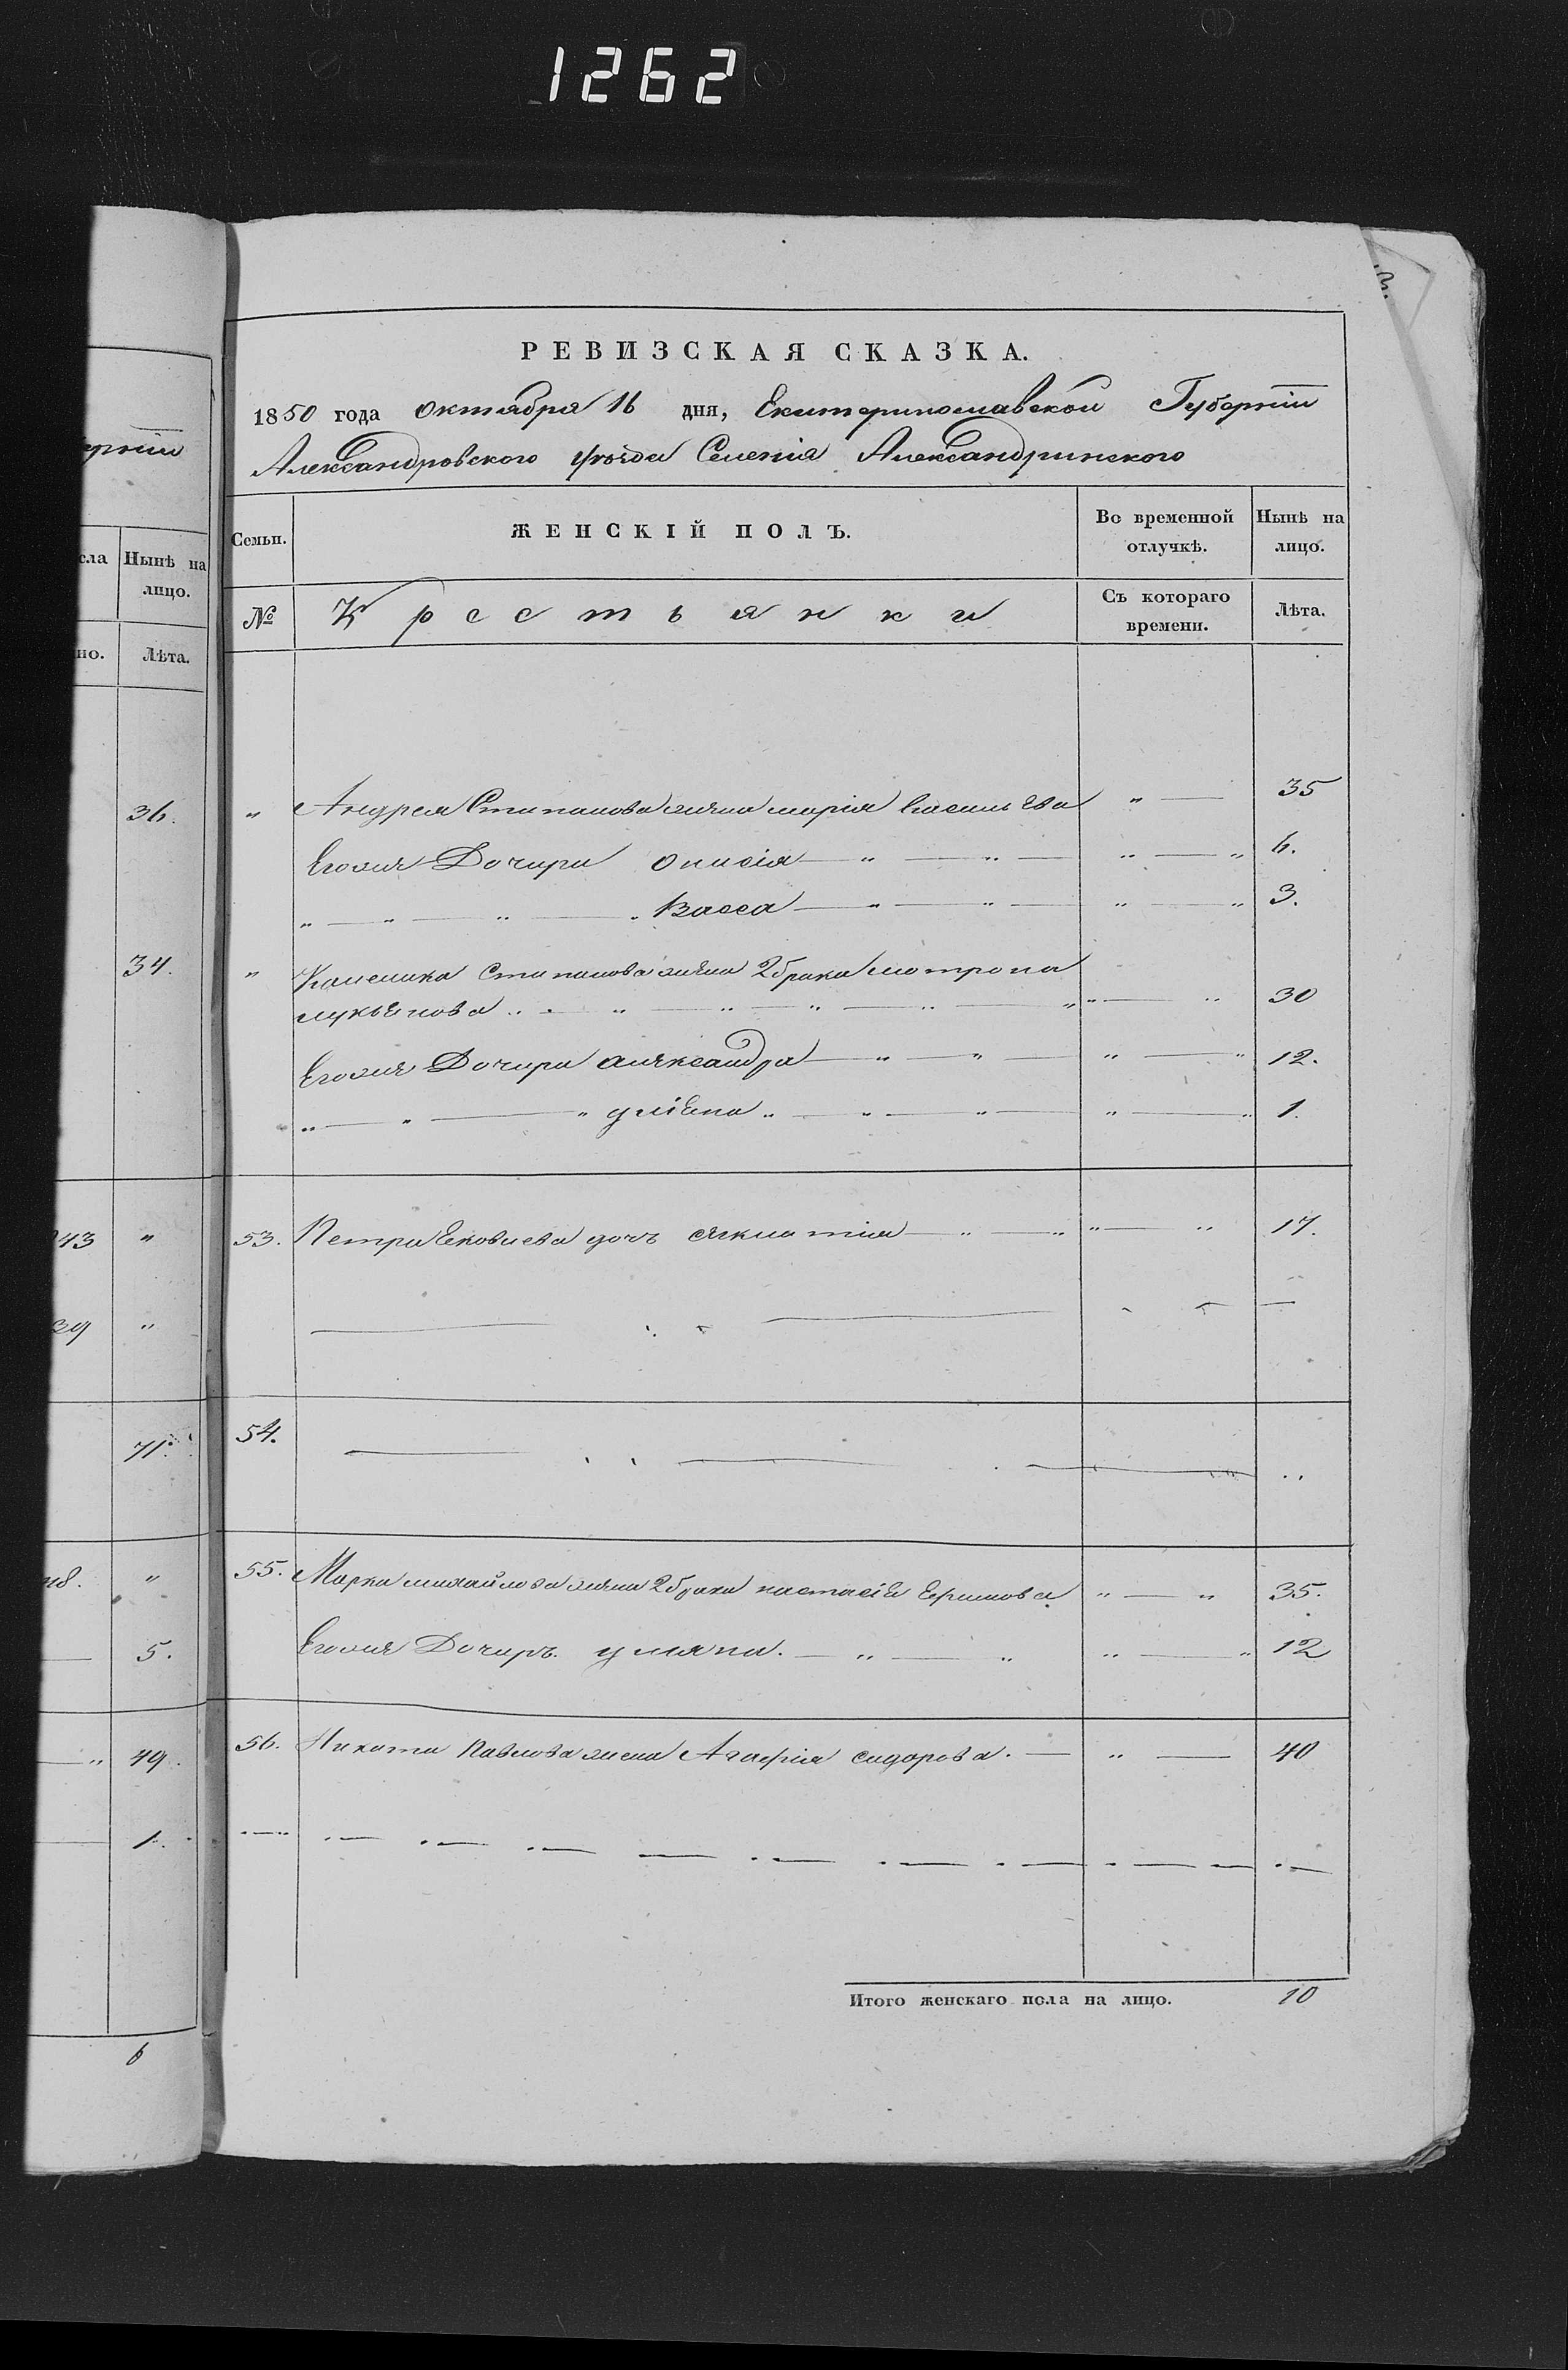 1262
ернiи
сла Нынѣ на
лицо.
но. Лѣта.
36.
34.
943 "
39 "
71.
"
5.
" 49.
1.
6
РЕВИЗСКАЯ СКАЗКА.
1850 года октября 16 дня, Екатеринославской Губернiи
Александровского уѣзда Селенiя Александринского
Семьи. ЖЕНСКIЙ ПОЛЪ. Во временной отлучкѣ. Нынѣ на лицо.
№ Крестьянки Съ котораго времени. Лѣта.
" Андрея Стипанова жена марiя васильева " — 35
Егоже Дочири онисiя — " — " — " — " 6.
" — " — " — " Васса — " — " — " — " 3.
" Стипанова жена 2 брака мотрона
лукьенова " — " — " — " — " — " " — " 30
Егоже Дочири аляксандра — " — " — " — " 12.
" — " — " улiена " — " — " — " — " 1.
53. Петра Ековлева дочъ — " — " " — " 17.
54.
55. Марка михайлова жена 2 брака настасiе Еримова " — " 35.
Егоже Дочиръ уляна. — " — " " — " 12
56. Никиты Павлова жена Агафiя сидорова. — " — 40
Итого женскаго пола на лицо. 10